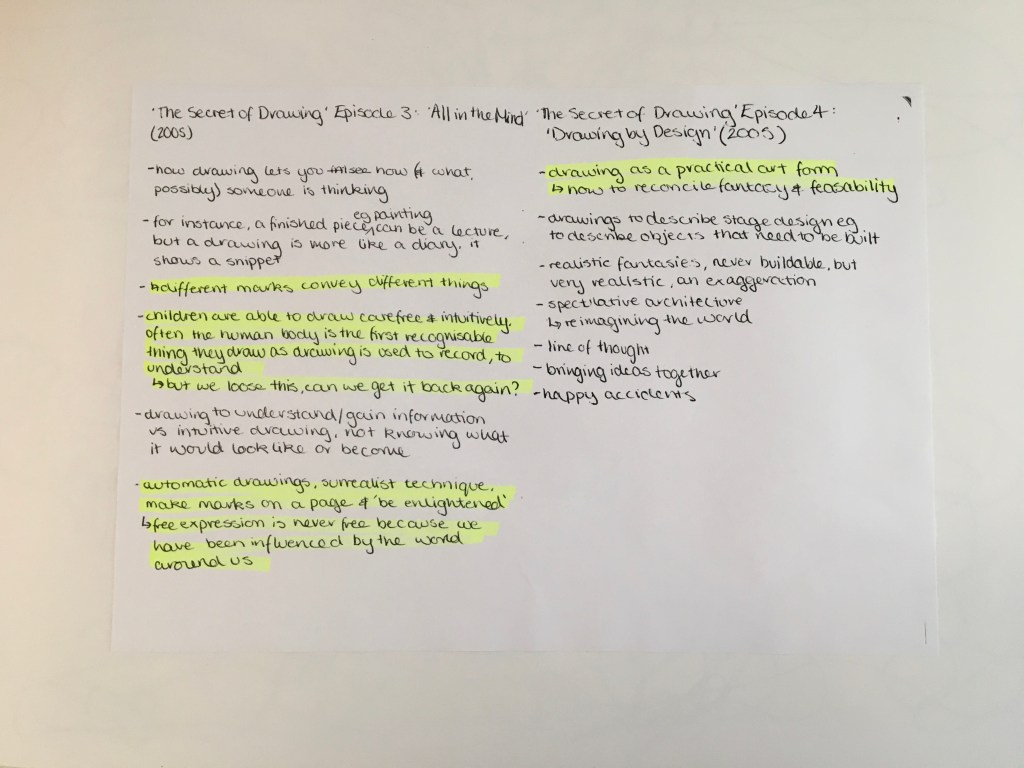 'The Secret of Drawing' Episode 3: 'All in the Mind'
(2005)
- how drawing lets you see how (& what
possibly) someone is thinking
- for instance, a finished piece, eg painting can be a lecture,
but a drawing is more like a diary. it
shows a snippet
- ↳different marks convey different things
- children are able to draw carefree & intuitively.
often the human body is the first recognisable
thing they draw as drawing is used to record, to
understand
↳ but we loose this, can we get it back again?
- drawing to understand/gain information
vs intuitive drawing, not knowing what
it would look like or become
- automatic drawings, surrealist technique,
make marks on a page & 'be enlightened'
↳ fee expression is never free because we
have been influenced by the world
around us
'The Secret of Drawing' Episode 4:
'Drawing by Design' (2005)
- drawing as a practical art form
↳ how to reconcile fantasy & feasability
- drawings to describe stage design eg
to describe objects that need to be built
- realistic fantasies, never buildable, but
very realistic, an exaggeration
- spectulative architecture
↳ reimagining the world
- line of thought
- bringing ideas together
- happy accidents